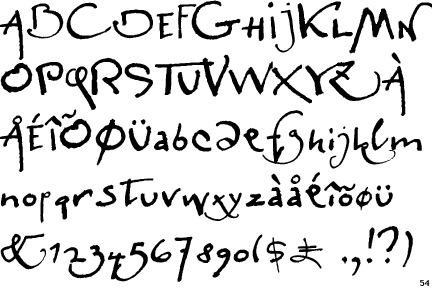 ABCDEFGHIJKLMN
OPQRSTUVWXYZÀ
ÅÉÎÕØÜabcdefghijklm
nopqrstuvwxyzàåéîõøü
&1234567890($£.,!?)
54